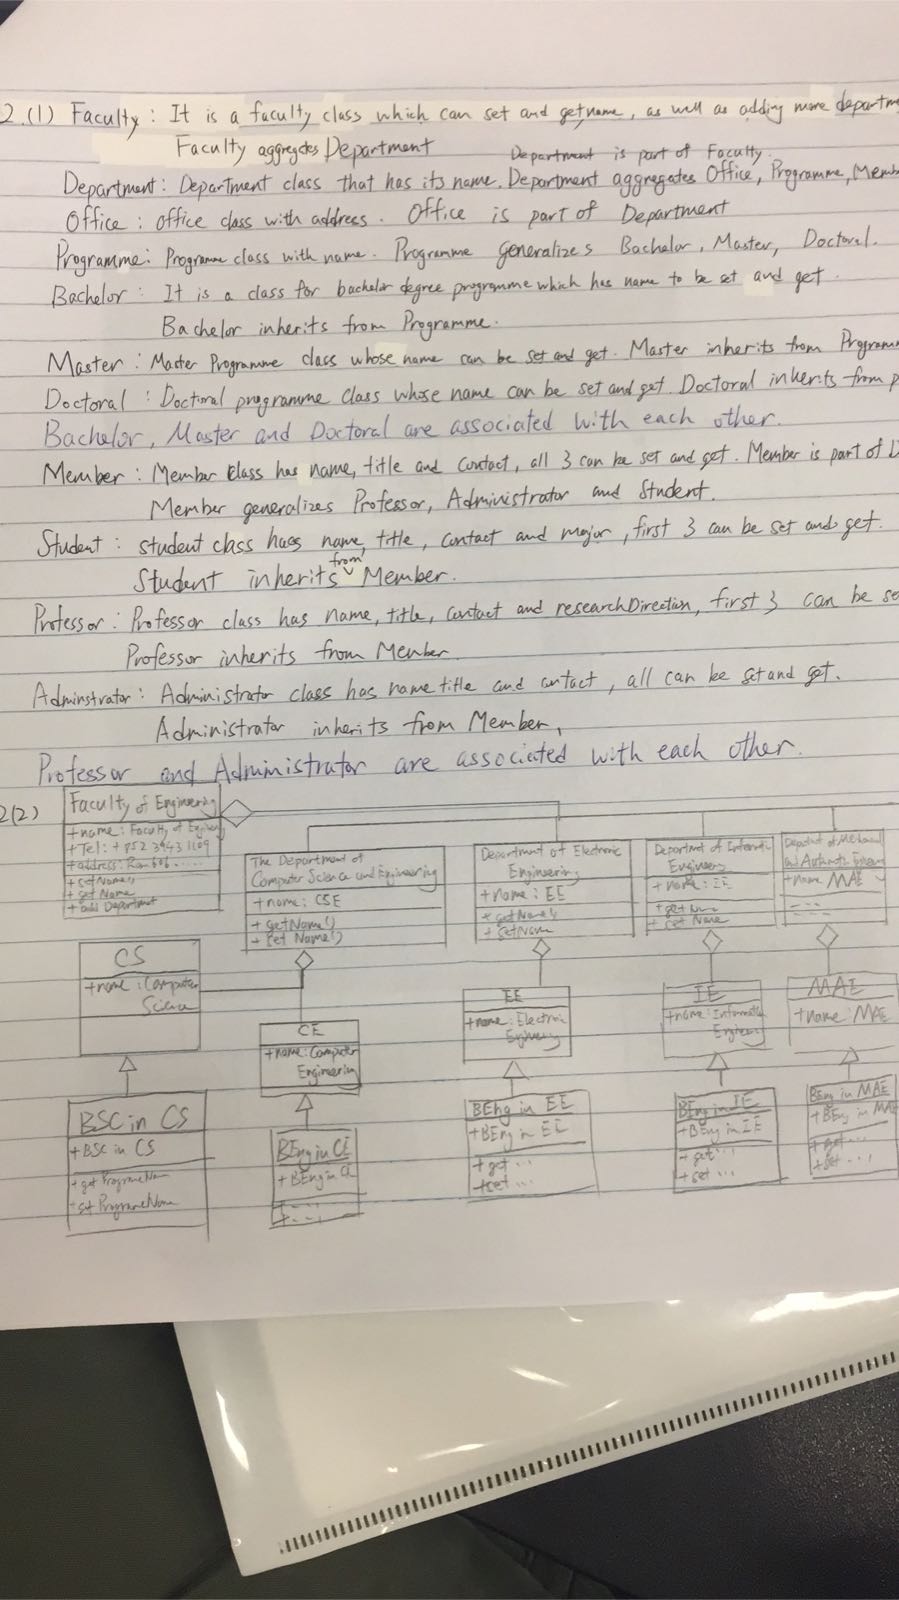 2.(1) Faculty : It is a faculty class which can set and get name, as well as adding more departm
Faculty aggregates Department
Department is part of Faculty.
Department : Department class that has its name. Department aggregates Office, Programme, Memb
Office : office class with address. Office is part of Department
Programme : Programme class with name. Programme generalizes Bachelor, Master, Doctoral.
Bachelor : It is a class for bachelor degree programme which has name to be set and get.
Bachelor inherits from Programme.
Master : Master Programme class whose name can be set and get. Master inherits from Programm
Doctoral : Doctoral programme class whose name can be set and get. Doctoral inherits from p
Bachelor, Master and Doctoral are associated with each other.
Member : Member class has name, title and contact, all 3 can be set and get. Member is part of D
Member generalizes Professor, Administrator and Student.
Student : student class has name, title, contact and major, first 3 can be set and get.
Student inherits from Member.
Professor : Professor class has name, title, contact and researchDirection, first 3 can be se
Professor inherits from Member
Adminstrator : Administrator class has name title and contact, all can be set and get.
Administrator inherits from Member,
Professor and Administrator are associated with each other.
2(2)
Faculty of Engineering
+name: Faculty of
+Tel: +852 3943 1109
+address:
+setName()
+get Name
+add Department
The Department of
Computer Science and Engineering
+name: CSE
+getName()
+set Name()
Department of Electronic
Engineering
+name: EE
+getName()
+setName
Engineering
+name: IE
+set Name
+name MAE
CS
+name: Computer
Science
CE
+name: Computer
Engineering
EE
+name: Electronic
IE
MAE
+name: MAE
BSC in CS
+BSC in CS
+get ProgrameNam
+set ProgrameNam
BEng in CE
+BEng in CE
+...
BEng in EE
+BEng in EE
+get ...
+set ...
BEng in IE
+BEng in IE
+get ...
+set ...
BEng in MAE
+BEng in MAE
+get ...
+set ...